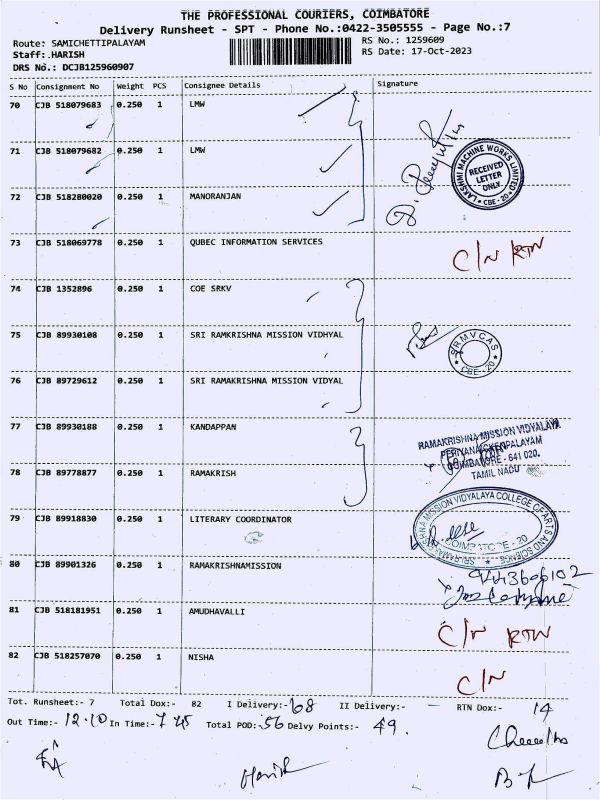 THE PROFESSIONAL COURIERS, COIMBATORE
Delivery Runsheet - SPT - Phone No.:0422-3505555 - Page No.:7
Route: SAMICHETTIPALAYAM
RS No.: 1259609
Staff:.HARISH
RS Date: 17-Oct-2023
DRS No.: DCJB125960907
S No Consignment No Weight PCS Consignee Details Signature
70 CJB 518079683 0.250 1 LMW
71 CJB 518079682 0.250 1 LMW
LAKSHMI MACHINE WORKS LIMITED
RECEIVED
LETTER
ONLY.
* CBE-20 *
72 CJB 518280020 0.250 1 MANORANJAN
73 CJB 518069778 0.250 1 QUBEC INFORMATION SERVICES
C/N RTN
74 CJB 1352896 0.250 1 COE SRKV
75 CJB 89930108 0.250 1 SRI RAMKRISHNA MISSION VIDHYAL
SRMVCAS
CBE-20
76 CJB 89729612 0.250 1 SRI RAMAKRISHNA MISSION VIDYAL
77 CJB 89930188 0.250 1 KANDAPPAN
RAMAKRISHNA MISSION VIDYALAYA
PERIYANAICKENPALAYAM
COIMBATORE - 641 020.
TAMIL NADU
78 CJB 89778877 0.250 1 RAMAKRISH
79 CJB 89918830 0.250 1 LITERARY COORDINATOR
SRI RAMAKRISHNA MISSION VIDYALAYA COLLEGE OF ARTS AND SCIENCE
COIMBATORE - 20
80 CJB 89901326 0.250 1 RAMAKRISHNAMISSION
81 CJB 518181951 0.250 1 AMUDHAVALLI
C/N RTN
82 CJB 518257070 0.250 1 NISHA
C/N
Tot. Runsheet:- 7 Total Dox:- 82 I Delivery:- 68 II Delivery:- - RTN Dox:- 14
Out Time:- 12.10 In Time:- 7 45 Total POD:- 56 Delvy Points:- 49.
Harish